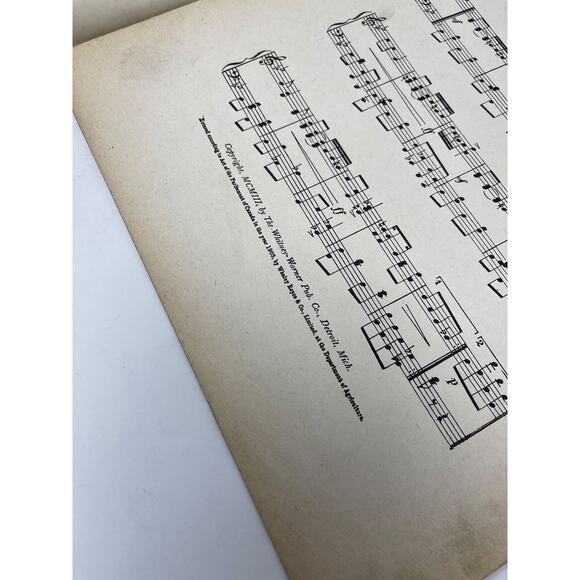 ff
ff
sf
1
2
p
Copyright, MCMIII, by The Whitney-Warner Pub. Co., Detroit, Mich.
Entered according to Act of the Parliament of Canada in the year 1903, by Whaley Royce & Co., Limited, at the Department of Agriculture.